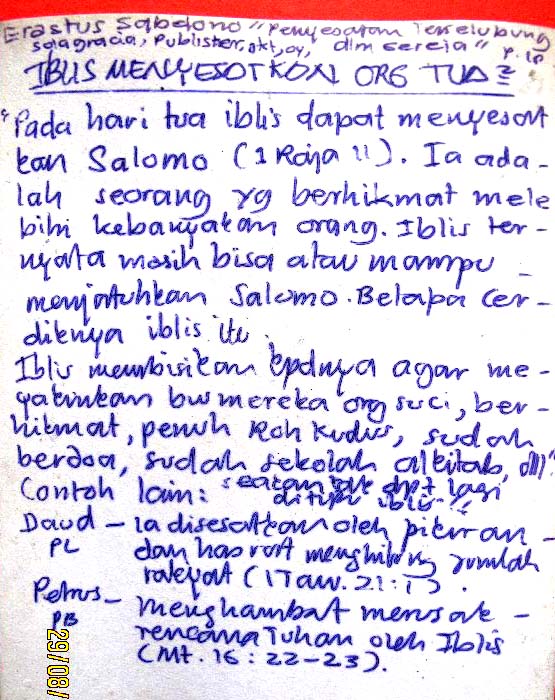 Erastus Sabdono "Penyesatan Terselubung
solagracia, Publister, okt, 04, dlm Gereja" p.10
IBLIS MENYESATKAN ORG TUA?
"Pada hari tua iblis dapat menyesat
kan Salomo (1 Raja 11). Ia ada-
lah seorang yg berhikmat mele
bihi kebanyakan orang. Iblis ter-
nyata masih bisa atau mampu -
menjatuhkan Salomo. Betapa cer-
diknya iblis itu.
Iblis membisikan kpdnya agar me-
yakinkan bw mereka org suci, ber-
hikmat, penuh Roh Kudus, sudah
berdoa, sudah sekolah alkitab, dll"
seakan tak dpt lagi
Contoh lain: ditipu iblis-
Daud - Ia disesatkan oleh pikiran -
PL dan hasrat menghitung jumlah
rakyat (1 Taw. 21:1).
Petrus - Menghambat merusak -
PB rencana Tuhan oleh Iblis
(Mt. 16:22-23).
29/08/